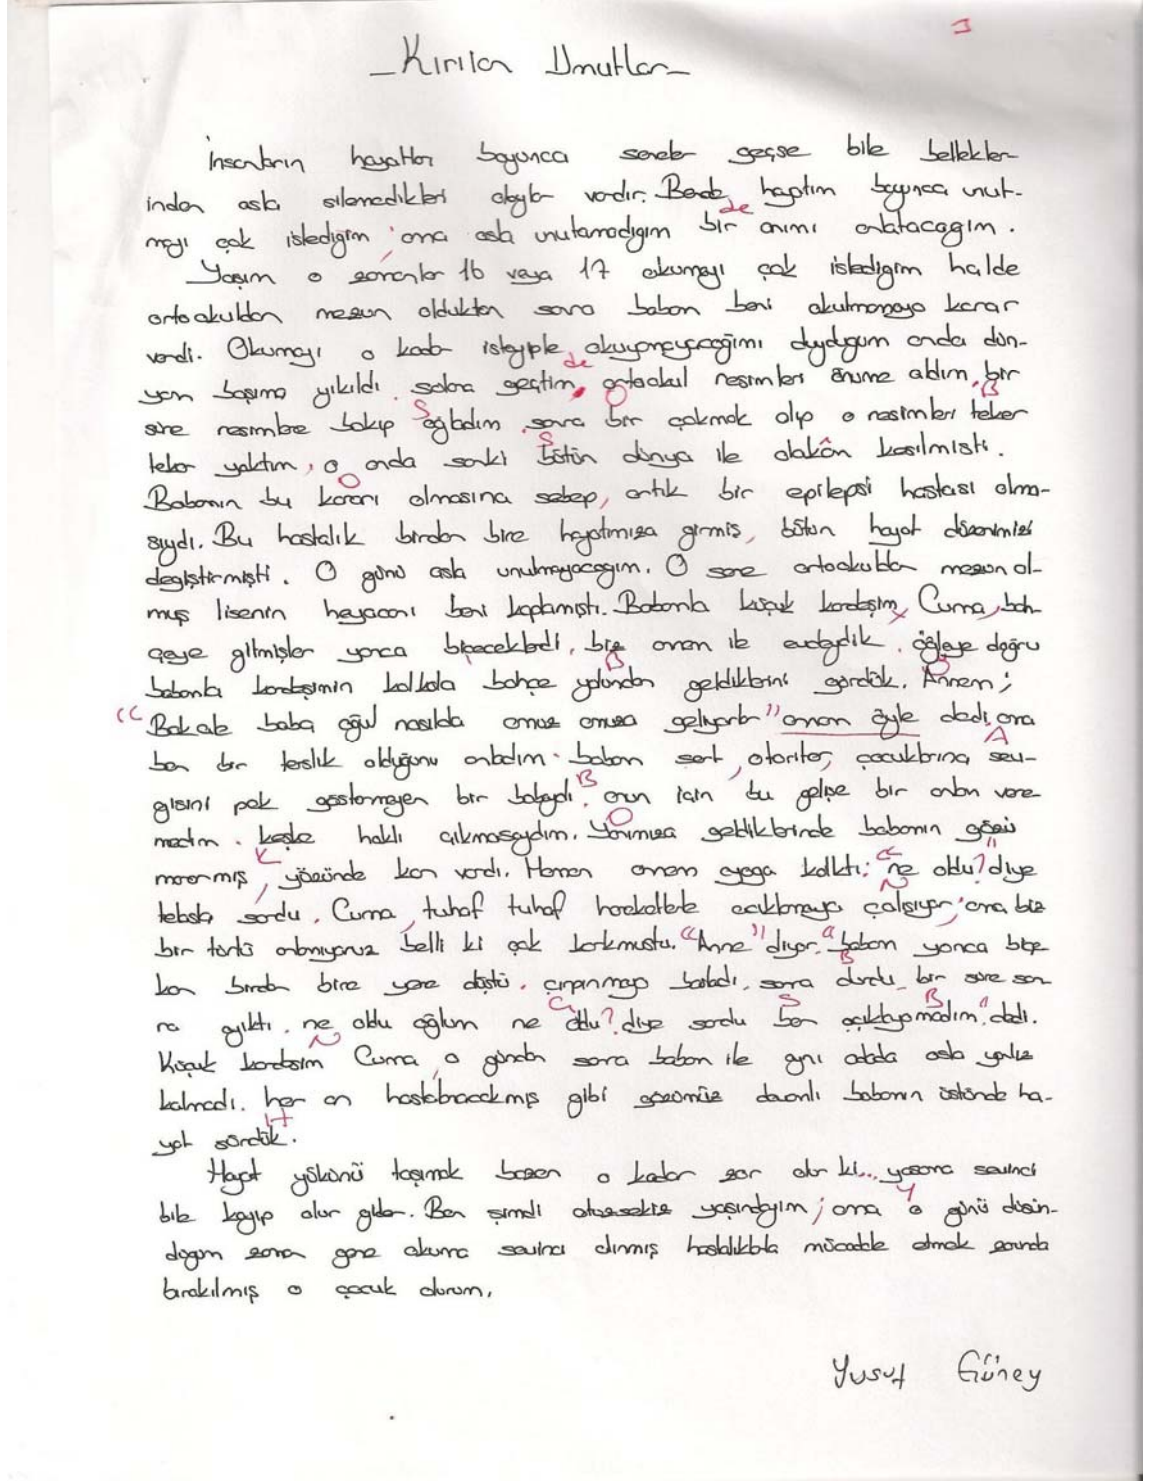 _Kırılan Umutlar_
İnsanların hayatları boyunca seneler geçse bile bellekler-
inden asla silemedikleri olaylar vardır. Bende hayatım boyunca unut-
de
mayı çok istediğim, ama asla unutamadığım bir anımı anlatacağım.
Yaşım o zamanlar 16 veya 17 okumayı çok istediğim halde
ortaokuldan mezun olduktan sonra babam beni okutmamaya karar
verdi. Okumayı o kadar isteyipte okuyamayacağımı duyduğum anda dün-
de
yam başıma yıkıldı. salona geçtim, ortaokul resimleri önüme aldım, bir
S O B
süre resimlere bakıp ağladım. sonra bir çakmak alıp o resimleri teker
S
teker yaktım, o anda sanki bütün dünya ile alakâm kesilmişti.
O
Babamın bu kararı almasına sebep, artık bir epilepsi hastası olma-
sıydı. Bu hastalık birden bire hayatımıza girmiş, bütün hayat düzenimizi
değiştirmişti. O günü asla unutmayacağım. O sene ortaokuldan mezun ol-
muş lisenin heyecanı beni kaplamıştı. Babamla küçük kardeşim, Cuma, bah-
çeye gitmişler yonca biçeceklerdi, biz anam ile evdeydik. öğleye doğru
B Ö
babamla kardeşimin kolkola bahçe yolundan geldiklerini gördük. Annem;
"Bak ale baba oğul nasılda omuz omuza geliyorlar" anam öyle dedi, ama
A
ben bir terslik olduğunu anladım. babam sert, otoriter, çocuklarına sev-
B
gisini pek göstermeyen bir babaydı. onun için bu gelişe bir anlam vere
O
medim. keşke haklı çıkmasaydım. Yanımıza geldiklerinde babamın gözü
K
morarmış, yüzünde kan vardı. Hemen anam ayağa kalktı: "ne oldu?" diye
N
telaşla sordu. Cuma, tuhaf tuhaf hareketlerle açıklamaya çalışıyor, ama biz
bir türlü anlamıyoruz belli ki çok korkmuştu. "Anne" diyor. "babam yonca biçer
B
ken birden bire yere düştü. çırpınmaya başladı, sonra durdu, bir süre son
Ç S B
ra ayıktı. ne oldu oğlum ne oldu? diye sordu ben açıklayamadım." dedi.
N
Küçük kardeşim Cuma, o günden sonra babam ile aynı odada asla yalnız
kalmadı. her an hastalanacakmış gibi gözümüz devamlı babamın üstünde ha-
H
yat sürdük.
Hayat yükünü taşımak bazen o kadar zor olur ki... yaşama sevinci
Y
bile kayıp olur gider. Ben şimdi otuzsekiz yaşındayım; ama o günü düşün-
düğüm zaman gene okuma sevinci dinmiş hastalıklarla mücadele etmek zorunda
bırakılmış o çocuk olurum.
Yusuf Güney